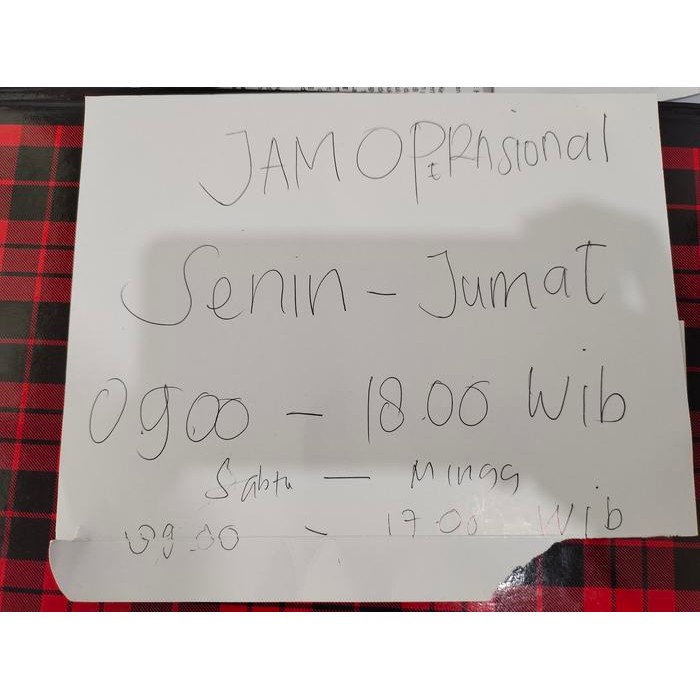 JAM OPERASIONAL
Senin - Jumat
09.00 - 18.00 Wib
Sabtu - Mingg
09.00 - 17.00 Wib